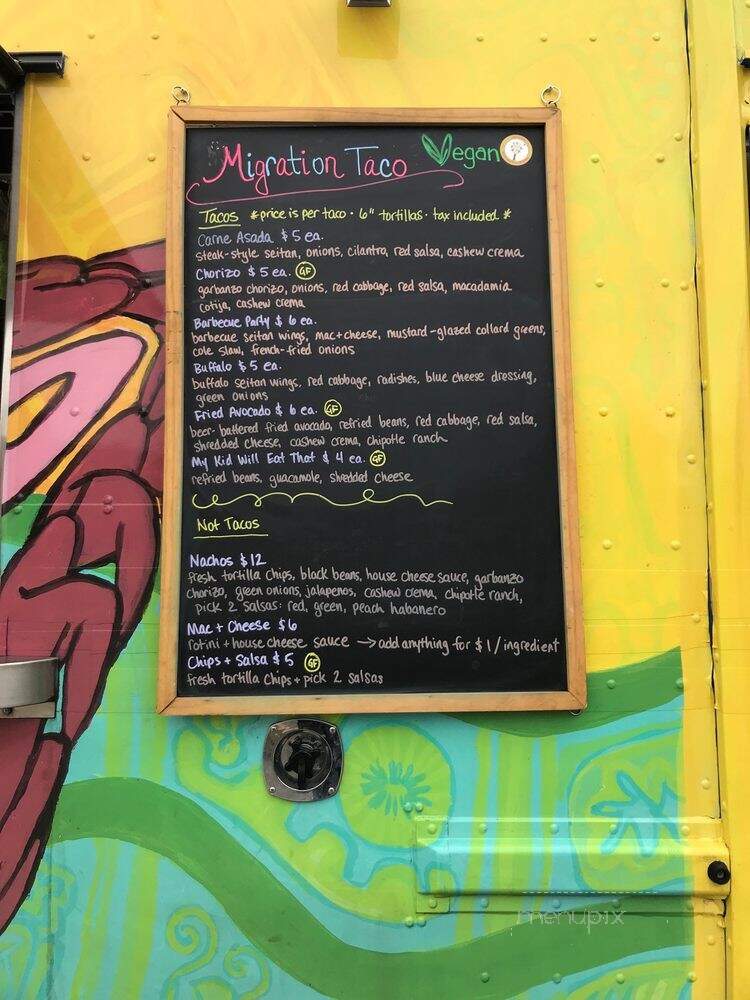 Migration Taco Vegan
Tacos *price is per taco · 6" tortillas · tax included*
Carne Asada $5 ea.
steak-style seitan, onions, cilantro, red salsa, cashew crema
Chorizo $5 ea. GF
garbanzo chorizo, onions, red cabbage, red salsa, macadamia
cotija, cashew crema
Barbecue Party $6 ea.
barbecue seitan wings, mac+cheese, mustard-glazed collard greens,
cole slaw, french-fried onions
Buffalo $5 ea.
buffalo seitan wings, red cabbage, radishes, blue cheese dressing,
green onions
Fried Avocado $6 ea. GF
beer-battered fried avocado, refried beans, red cabbage, red salsa,
shredded cheese, cashew crema, chipotle ranch
My Kid Will Eat That $4 ea. GF
refried beans, guacamole, shredded cheese
Not Tacos
Nachos $12
fresh tortilla chips, black beans, house cheese sauce, garbanzo
chorizo, green onions, jalapenos, cashew crema, chipotle ranch,
pick 2 salsas: red, green, peach habanero
Mac + Cheese $6
rotini + house cheese sauce → add anything for $1/ingredient
Chips + Salsa $5 GF
fresh tortilla chips + pick 2 salsas
menupix